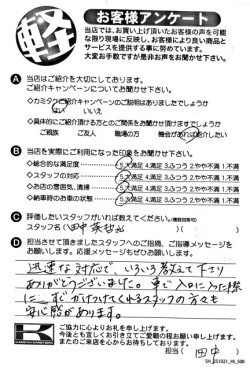 軽
お客様アンケート
当店では、お買い上げ頂いたお客様の声を可能
な限り現場に反映し、お客様により良い商品と
サービスを提供する事に努めています。
大変お手数ですが是非お声をお聞かせ下さい。
A 当店はご紹介を大切にしております。
ご紹介キャンペーンについてお聞かせ下さい。
◇カミタケご紹介キャンペーンのご説明はありましたでしょうか
はい いいえ
◇具体的にご紹介頂ける方との関係をお聞かせ頂けますでしょうか
ご親族 ご友人 職場の方 機会があれば紹介したい
B 当店を実際にご利用になった印象をお聞かせ下さい。
◇総合的な満足度 5.大満足 4.満足 3.ふつう 2.やや不満 1.不満
◇スタッフの対応 5.大満足 4.満足 3.ふつう 2.やや不満 1.不満
◇お店の雰囲気、清掃 5.大満足 4.満足 3.ふつう 2.やや不満 1.不満
◇納車時のお車の状態 5.大満足 4.満足 3.ふつう 2.やや不満 1.不満
C 評価したいスタッフがいれば教えてください。(複数回答可)
スタッフ名(田中 )
D 担当させて頂きましたスタッフへのご指摘、ご指導メッセージを
お願いします。応援メッセージもぜひお願いします。
迅速な対応で、いろいろ教えて下さり
ありがとうございました。車で入口に入った際
に、かけつけてくるスタッフの方々も
安心感があります。
K
ご協力に心よりお礼を申し上げます。
今後とも宜しくお引き立てご愛顧の程お願い申し上げます。
またのご来店を心からお待ちしております。
担当( 田中 )